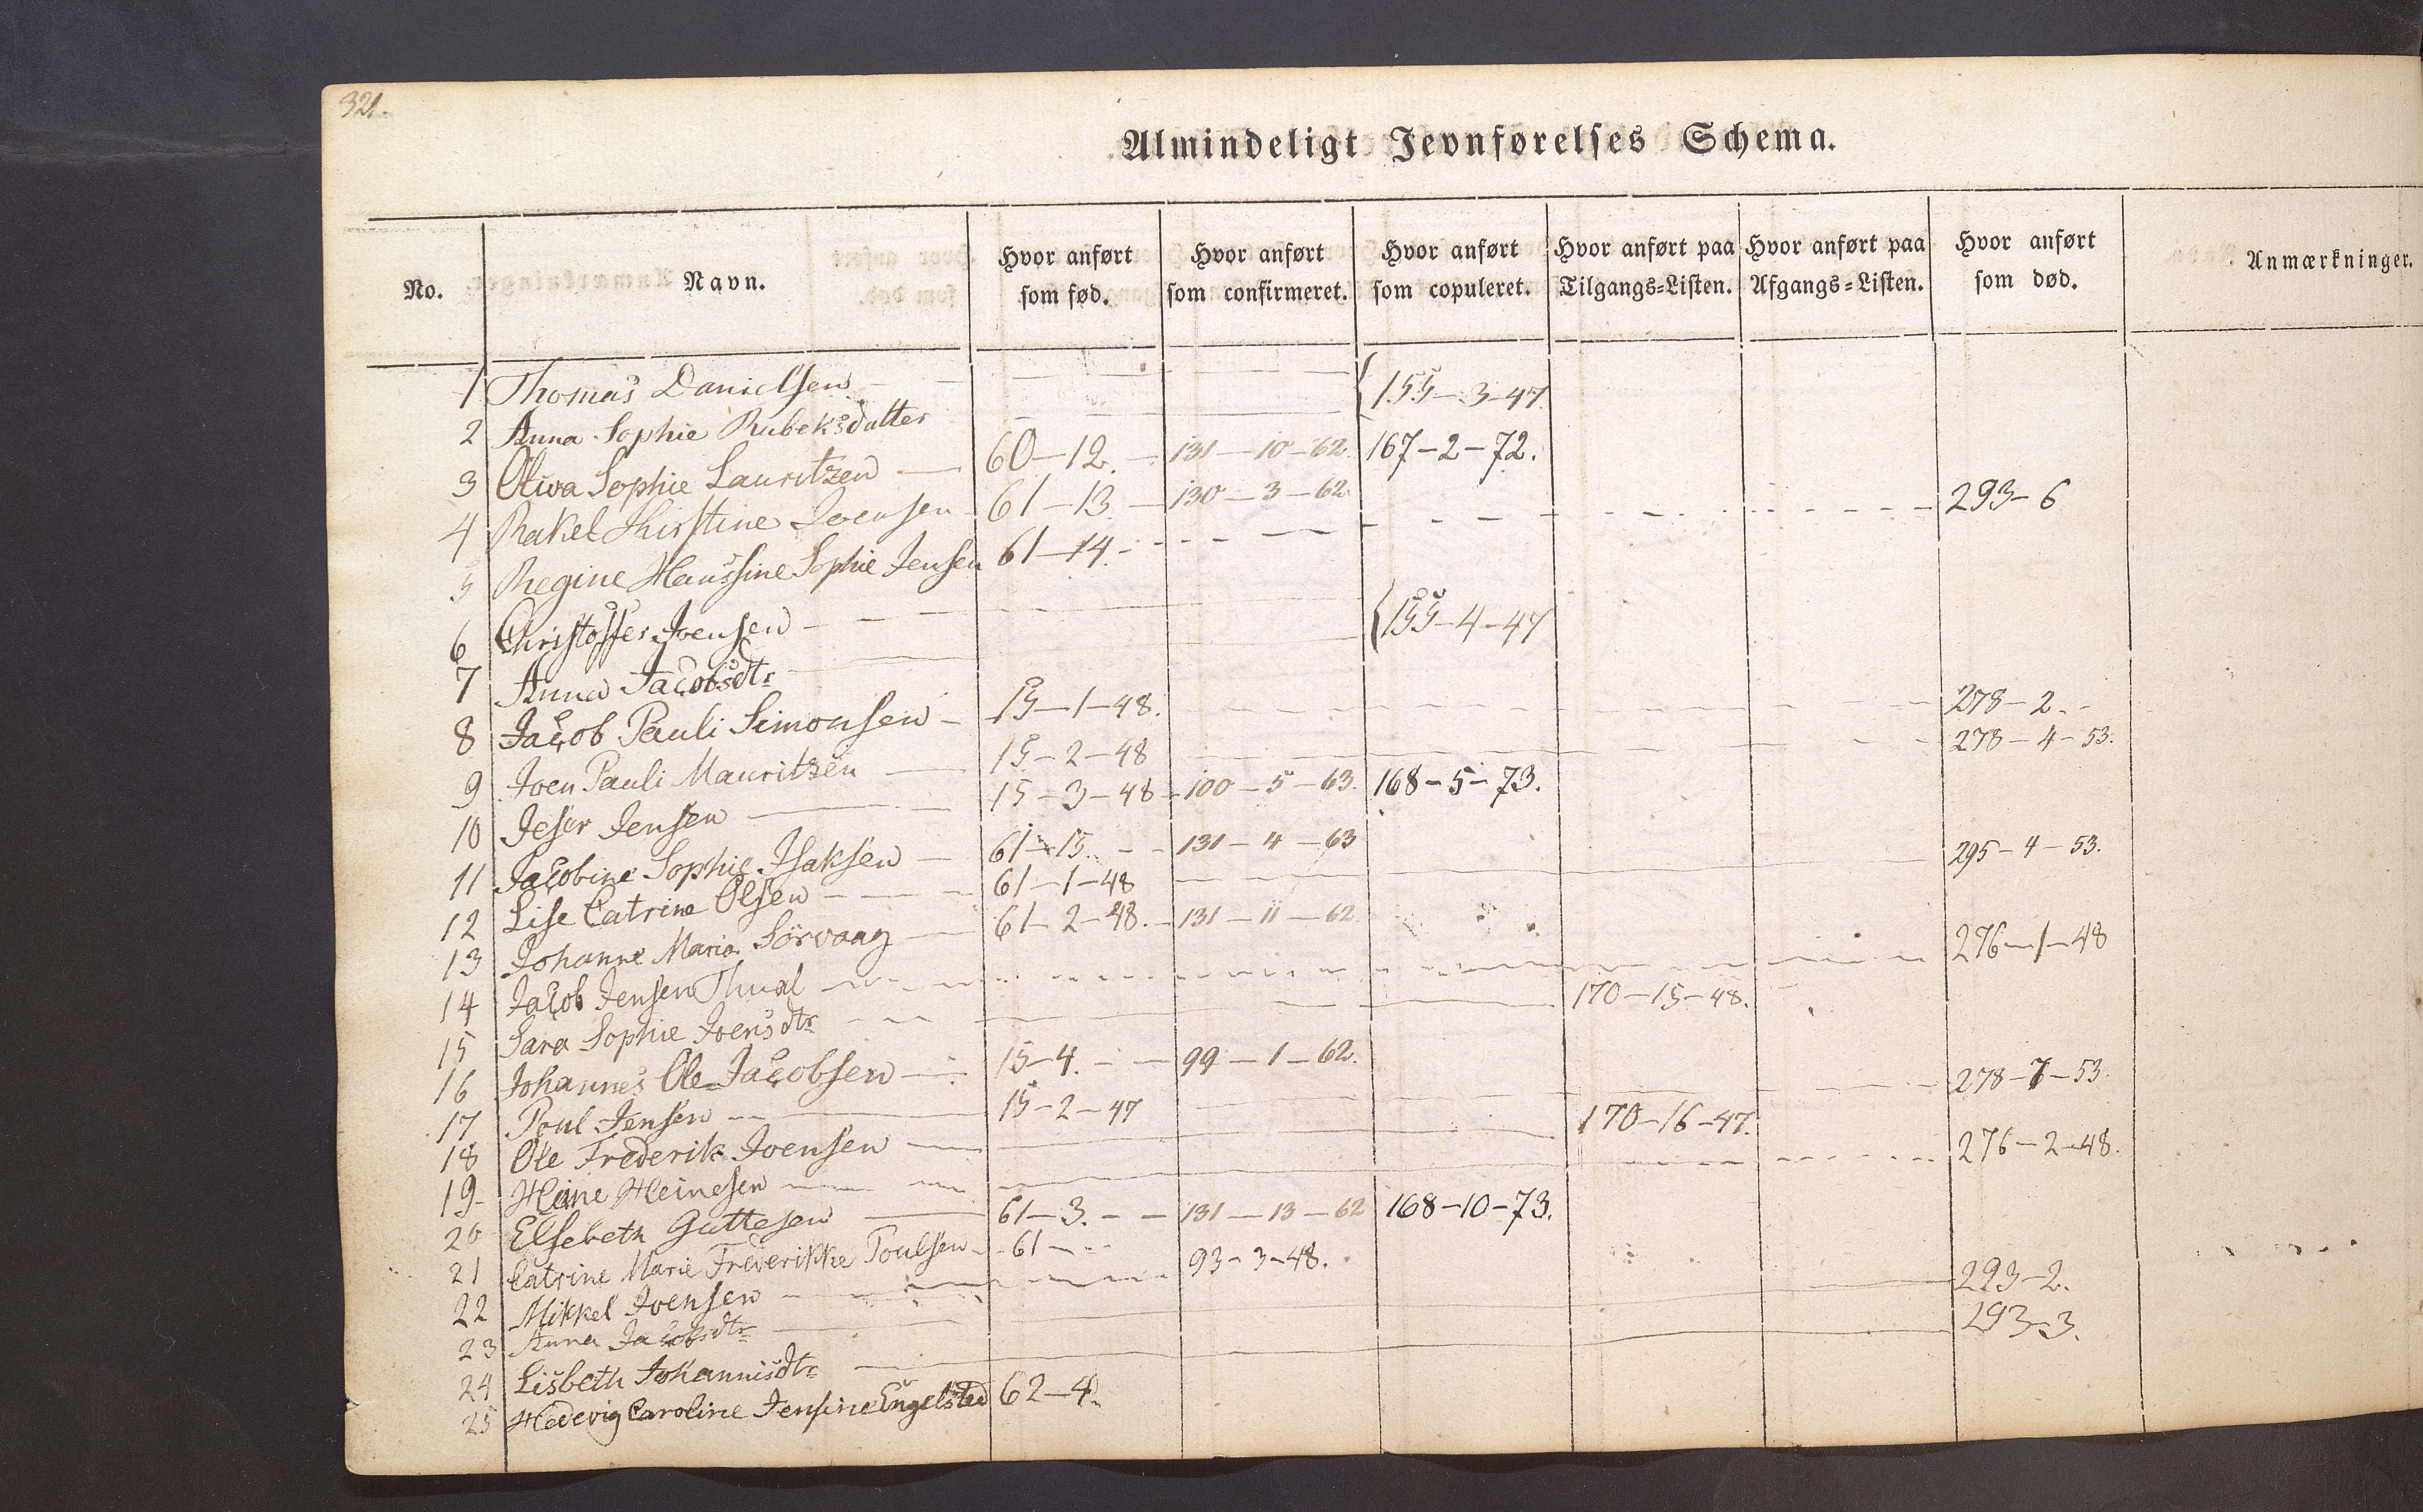 321.
Almindeligt Jevnførelses Schema.
No. Navn. Hvor anført som fød. Hvor anført som confirmeret. Hvor anført som copuleret. Hvor anført paa Tilgangs-Listen. Hvor anført paa Afgangs-Listen. Hvor anført som død. Anmærkninger.
1 Thomas Danielsen { 155-3-47.
2 Anna Sophie Rubeksdatter
3 Oliva Sophie Lauritzen 60-12. 131-10-62. 167-2-72.
4 Rakel Kirstine Joensen 61-13 130-3-62 293-6
5 Regine Hanssine Sophie Jensen 61-14.
6 Christoffer Joensen { 155-4-47
7 Anna Jacobsdtr
8 Jacob Pauli Simonsen 15-1-48. 278-2.
9 Joen Pauli Mauritzen 15-2-48 278-4-53.
10 Jesper Jensen 15-3-48 100-5-63. 168-5-73.
11 Jacobine Sophie Isaksen 61-15. 131-4-63
12 Lise Catrine Olsen 61-1-48 295-4-53.
13 Johanne Maria Sörvaag 61-2-48. 131-11-62
14 Jacob Jensen Thual 276-1-48
15 Sara Sophie Joensdtr 170-15-48.
16 Johannes Ole Jacobsen 15-4. 99-1-62.
17 Poul Jensen 15-2-47 278-7-53.
18 Ole Frederik Joensen 170-16-47.
19 Heine Heinesen 276-2-48.
20 Elsebeth Guttesen 61-3. 131-13-62 168-10-73.
21 Catrine Marie Frederikke Poulsen 61
22 Mikkel Joensen 93-3-48.
23 Anna Jacobsdtr 293-2.
24 Lisbeth Johannisdtr 293-3.
25 Hedevig Caroline Jensine Engelsted 62-4.